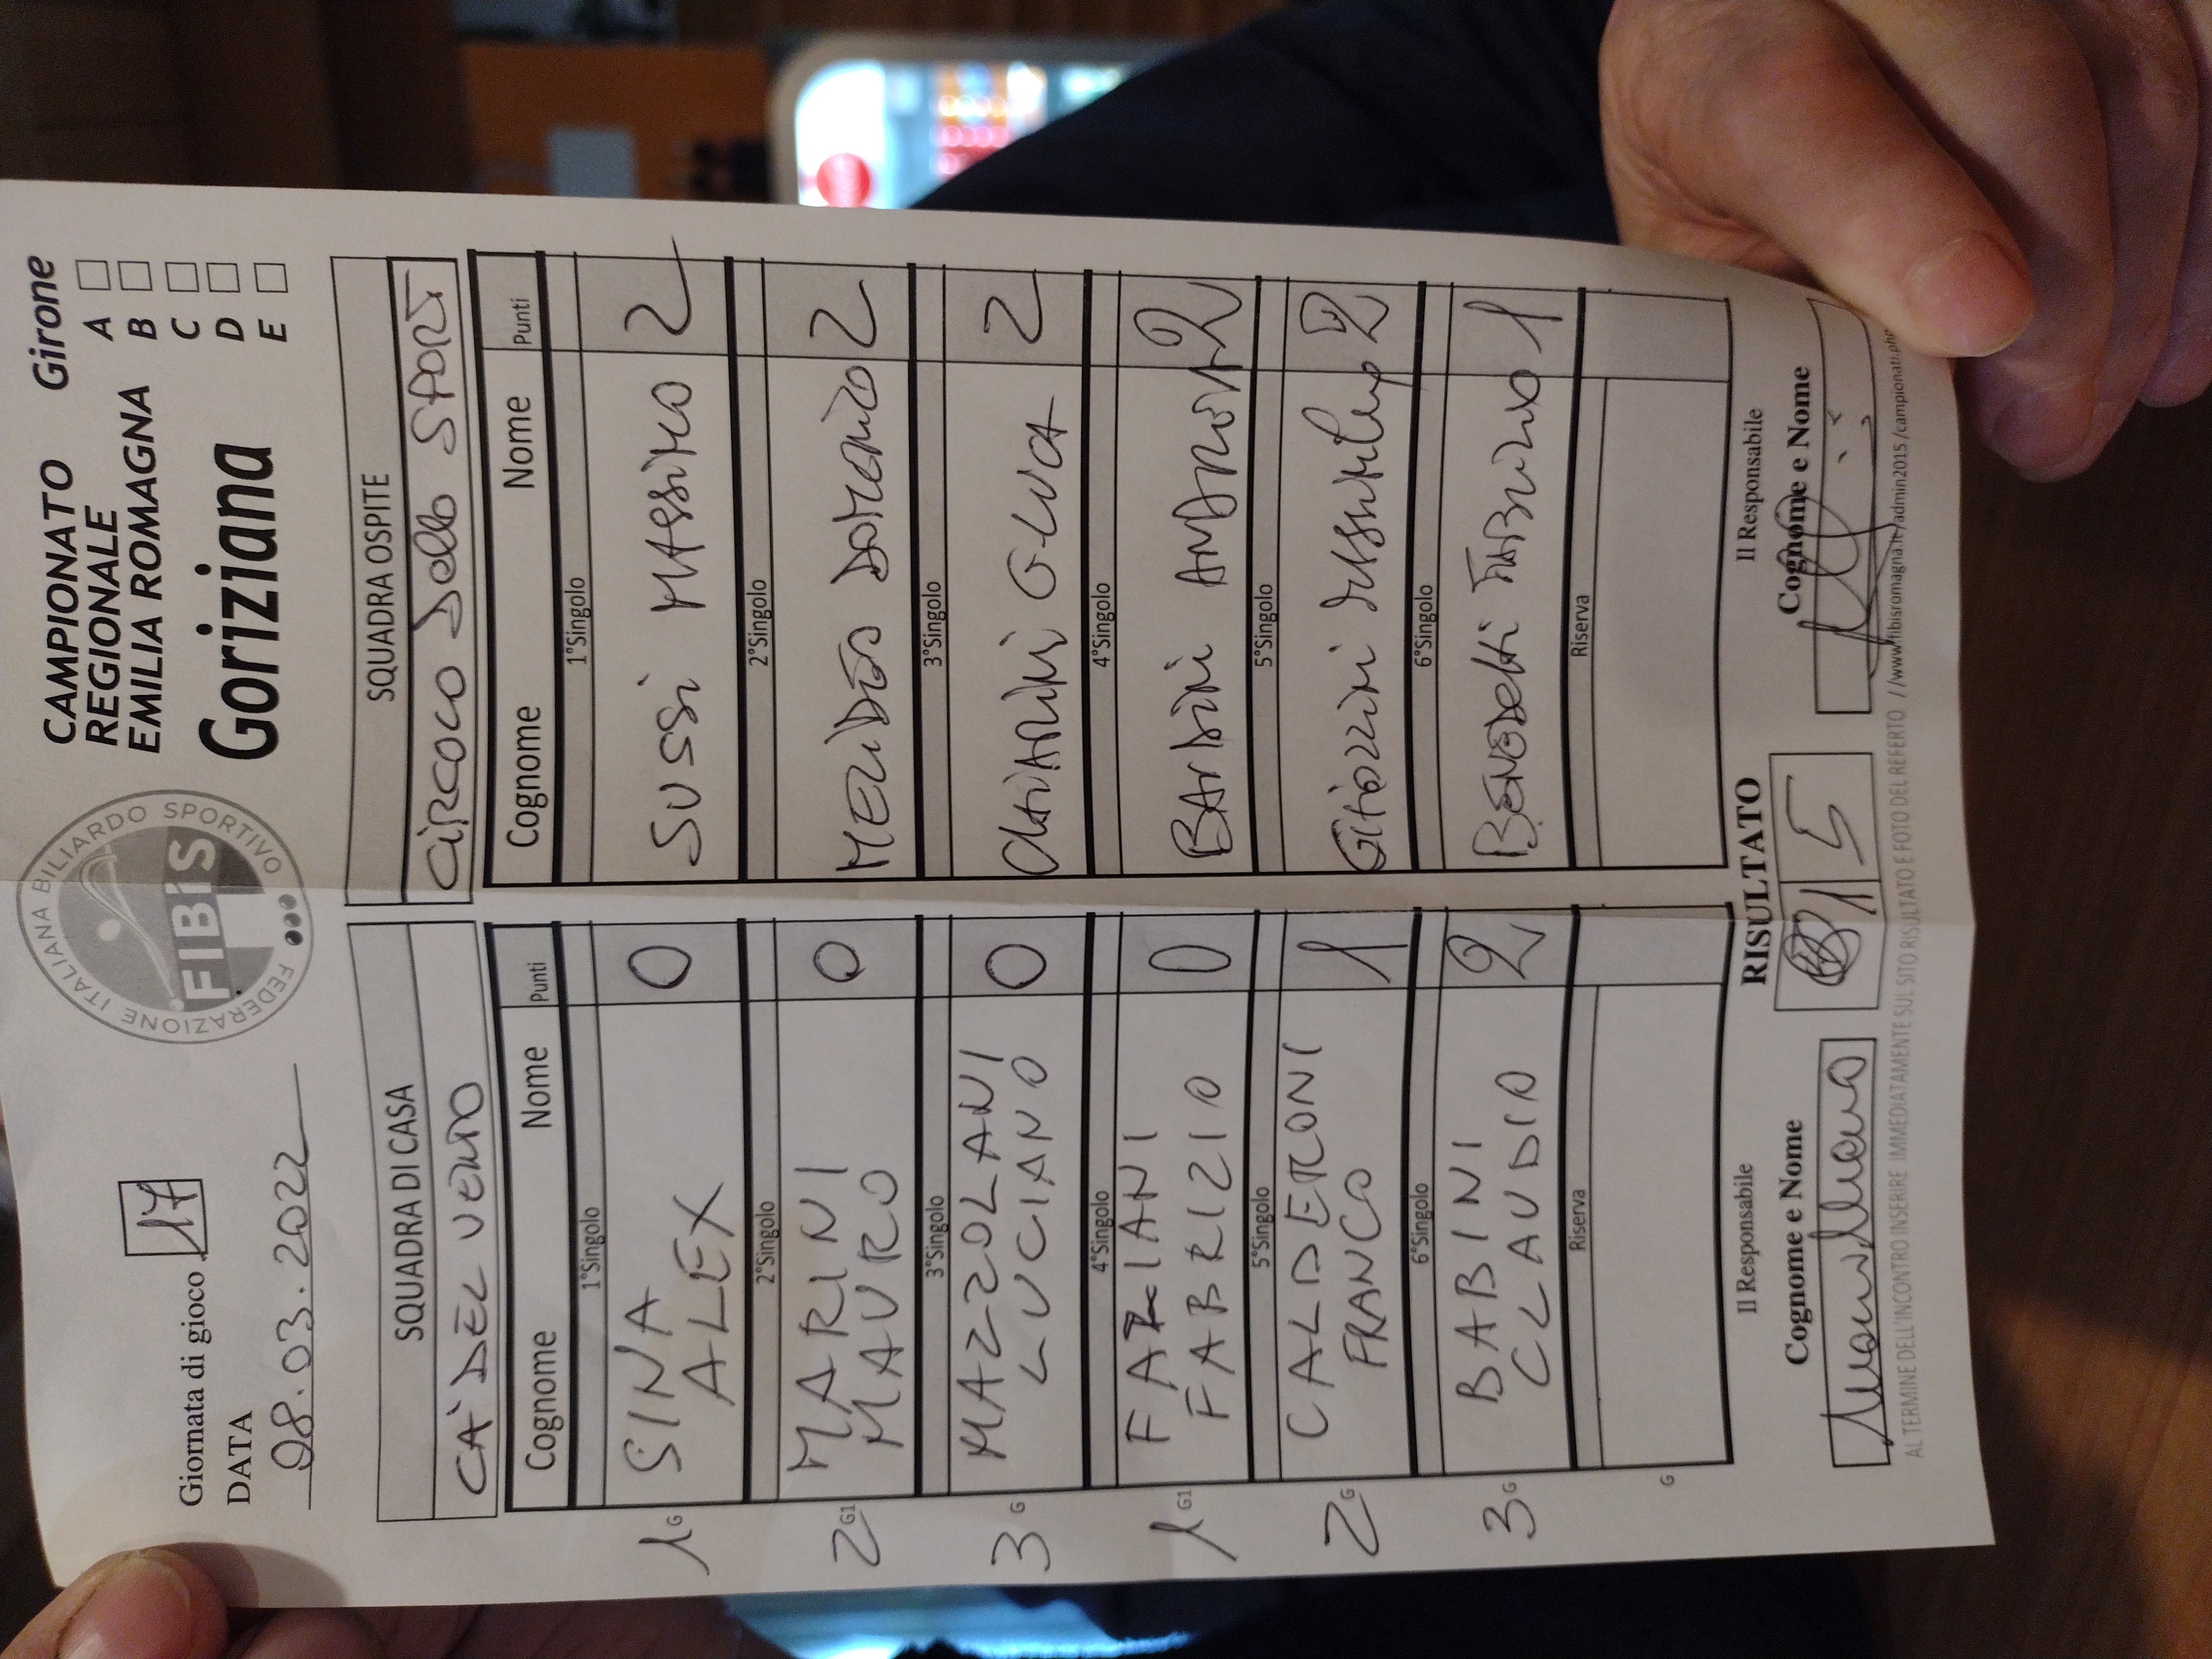 Giornata di gioco 17
DATA
08.03.2022
FEDERAZIONE ITALIANA BILIARDO SPORTIVO
FIBiS
CAMPIONATO
REGIONALE
EMILIA ROMAGNA
Goriziana
Girone
A
B
C
D
E
SQUADRA DI CASA
CA' DEL VENTO
Cognome Nome Punti
1°Singolo
1 G SINA 0
ALEX
2°Singolo
2 G1 MARINI 0
MAURO
3°Singolo
3 G MAZZOLANI 0
LUCIANO
4°Singolo
1 G1 FARIANI 0
FABRIZIO
5°Singolo
2 G CALDERONI 1
FRANCO
6°Singolo
3 G BABINI 2
CLAUDIO
Riserva
G
SQUADRA OSPITE
CIRCOLO Dello SPORT
Cognome Nome Punti
1°Singolo
SUSSI MASSIMO 2
2°Singolo
DOMENICO 2
3°Singolo
2
4°Singolo
BARDINI 2
5°Singolo
2
6°Singolo
BENEDETTI FABRIZIO 1
Riserva
Il Responsabile
Cognome e Nome
RISULTATO
1 5
Il Responsabile
Cognome e Nome
AL TERMINE DELL'INCONTRO INSERIRE IMMEDIATAMENTE SUL SITO RISULTATO E FOTO DEL REFERTO //www.fibisromagna.it/admin2015/campionati.php